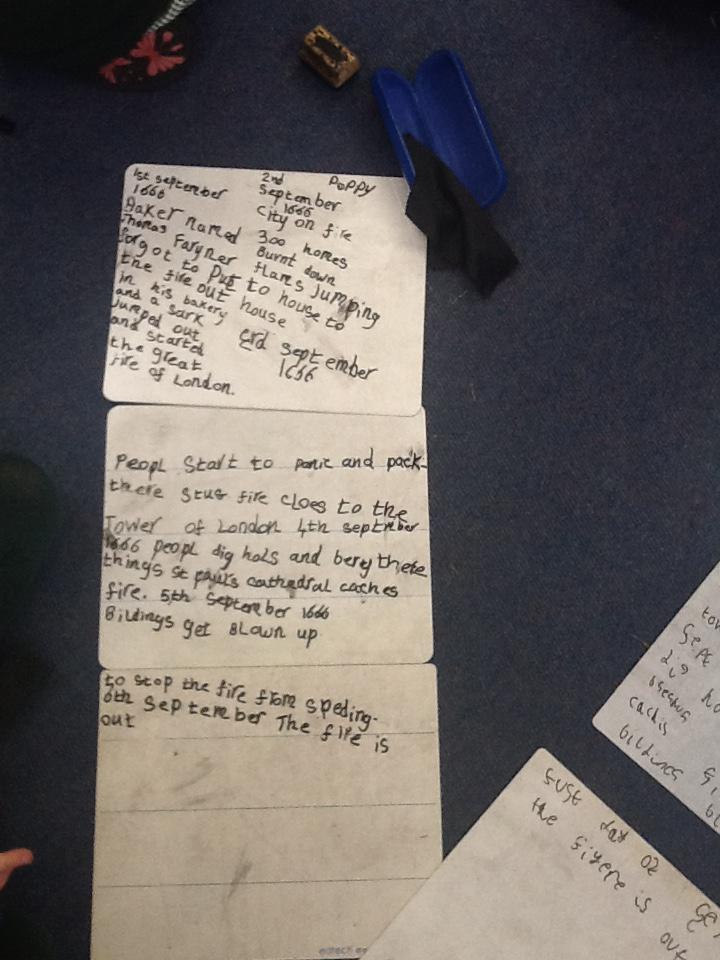 Poppy
1st september
1666
Baker named
Thomas Faryner
forgot to Put
the fire out
in his bakery
and a sark
Jumped out
and started
the great
fire of London.
2nd
September
1666
City on fire
300 homes
Burnt down
flams Jumping
to house to
house
3rd september
1666
Peopl start to panic and pack
there stuf fire cloes to the
Tower of London 4th september
1666 peopl dig hols and bery there
things st pauls cathedral caches
fire. 5th September 1666
Bildings get Blown up
to stop the fire from speding.
6th September The fire is
out
tow
Sept
dig ho
cachis
bildings
Just dat 02
the fiyere is out